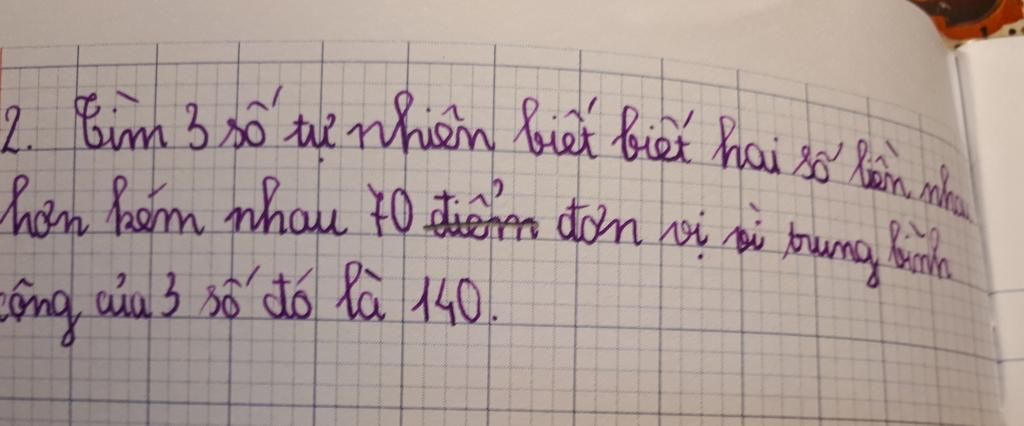 2. Tìm 3 số tự nhiên biết biết hai số liền nhau
hơn kém nhau 70 điểm đơn vị vì trung bình
công của 3 số đó là 140.